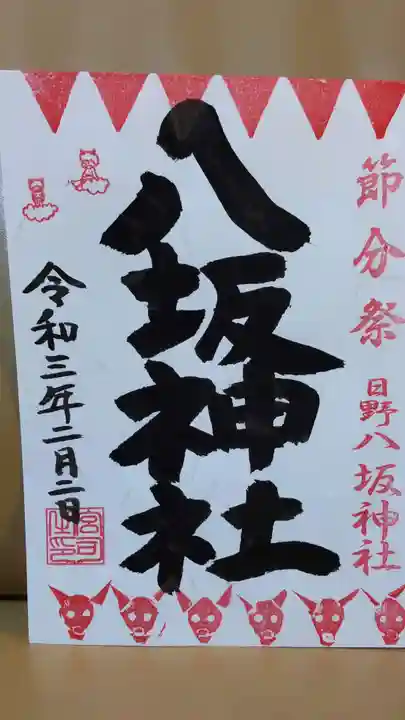 節分祭
日野八坂神社
八坂神社
令和三年二月二日
宮司之印